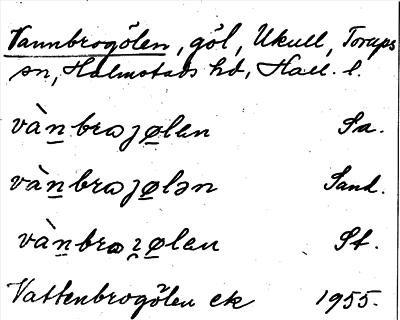 Vannbrogölen, göl, Ukull, Torups
sn, Halmstads hd, Hall. l.
vàn̲brωȷø̲lan Sa.
vàn̲brωȷø̲lən Sand.
vàn̲brωʒø̲lan St.
Vattenbrogölen ek 1955.